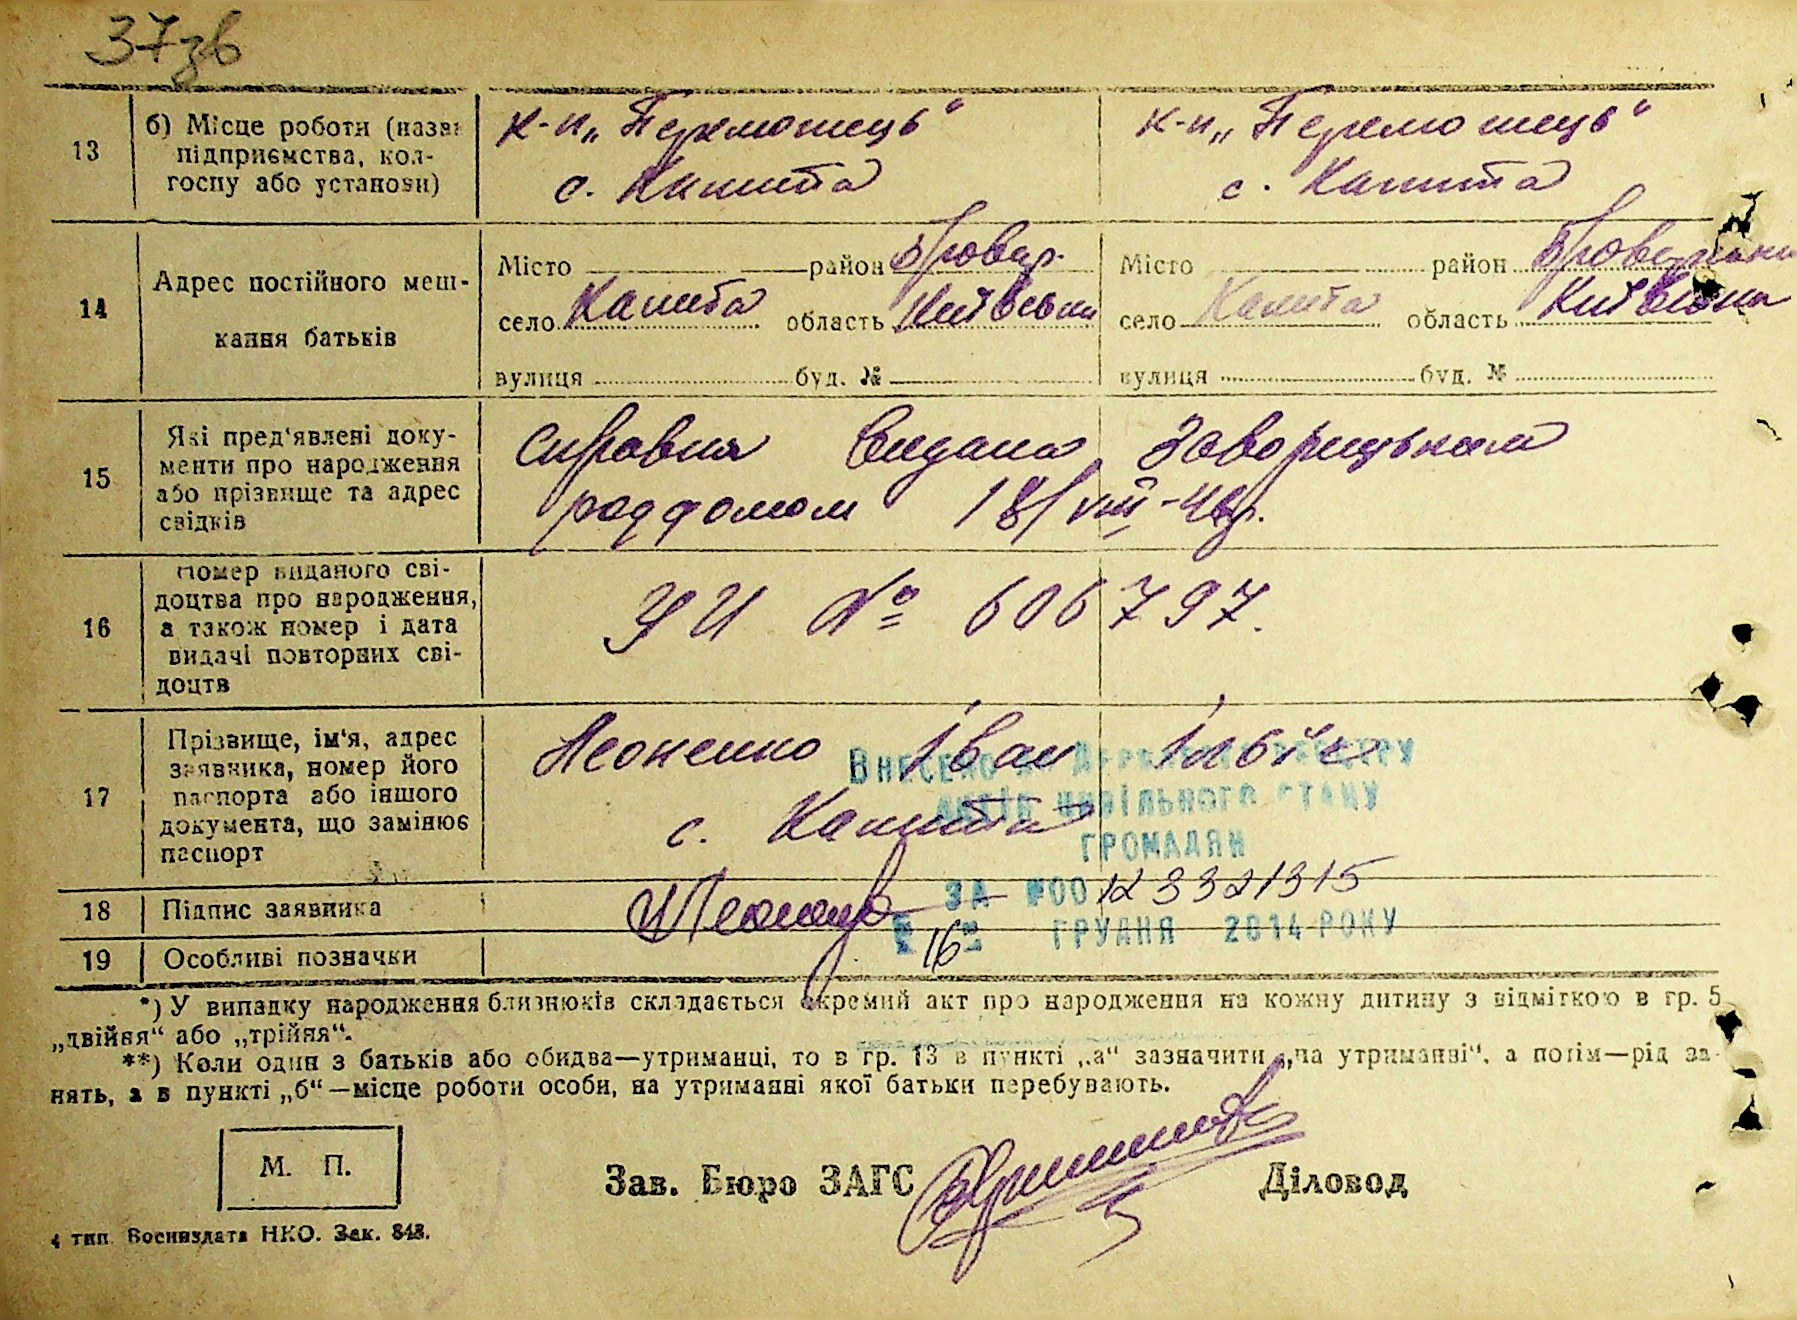 37зв
13
б) Місце роботи (назва
підприємства, кол-
госпу або установи)
к-п „Переможець“
с. Калита
к-п „Переможець“
с. Калита
14
Адрес постійного меш-
кання батьків
Місто район Бровар.
село Калита область Київська
вулиця буд. №
Місто район Броварський
село Калита область Київська
вулиця буд. №
15
Які пред'явлені доку-
менти про народження
або прізвище та адрес
свідків
Справка видана Заворицьким
роддомом 18/VIII-46р.
16
Номер виданого сві-
доцтва про народження,
а також номер і дата
видачі повторних сві-
доцтв
УИ № 606797.
17
Прізвище, ім'я, адрес
заявника, номер його
паспорта або іншого
документа, що замінює
паспорт
Леоненко Іван
с. Калита
Внесено до Державного реєстру
актів цивільного стану
громадян
за №00123321315
" 16 " грудня 2014 року
18
Підпис заявника
19
Особливі позначки
*) У випадку народження близнюків складається окремий акт про народження на кожну дитину з відміткою в гр. 5
„двійня“ або „трійня“.
**) Коли один з батьків або обидва—утриманці, то в гр. 13 в пункті „а“ зазначити „на утриманні“, а потім—рід за-
нять, а в пункті „б“—місце роботи особи, на утриманні якої батьки перебувають.
М. П.
Зав. Бюро ЗАГС
Діловод
4 тип. Воениздата НКО. Зак. 848.